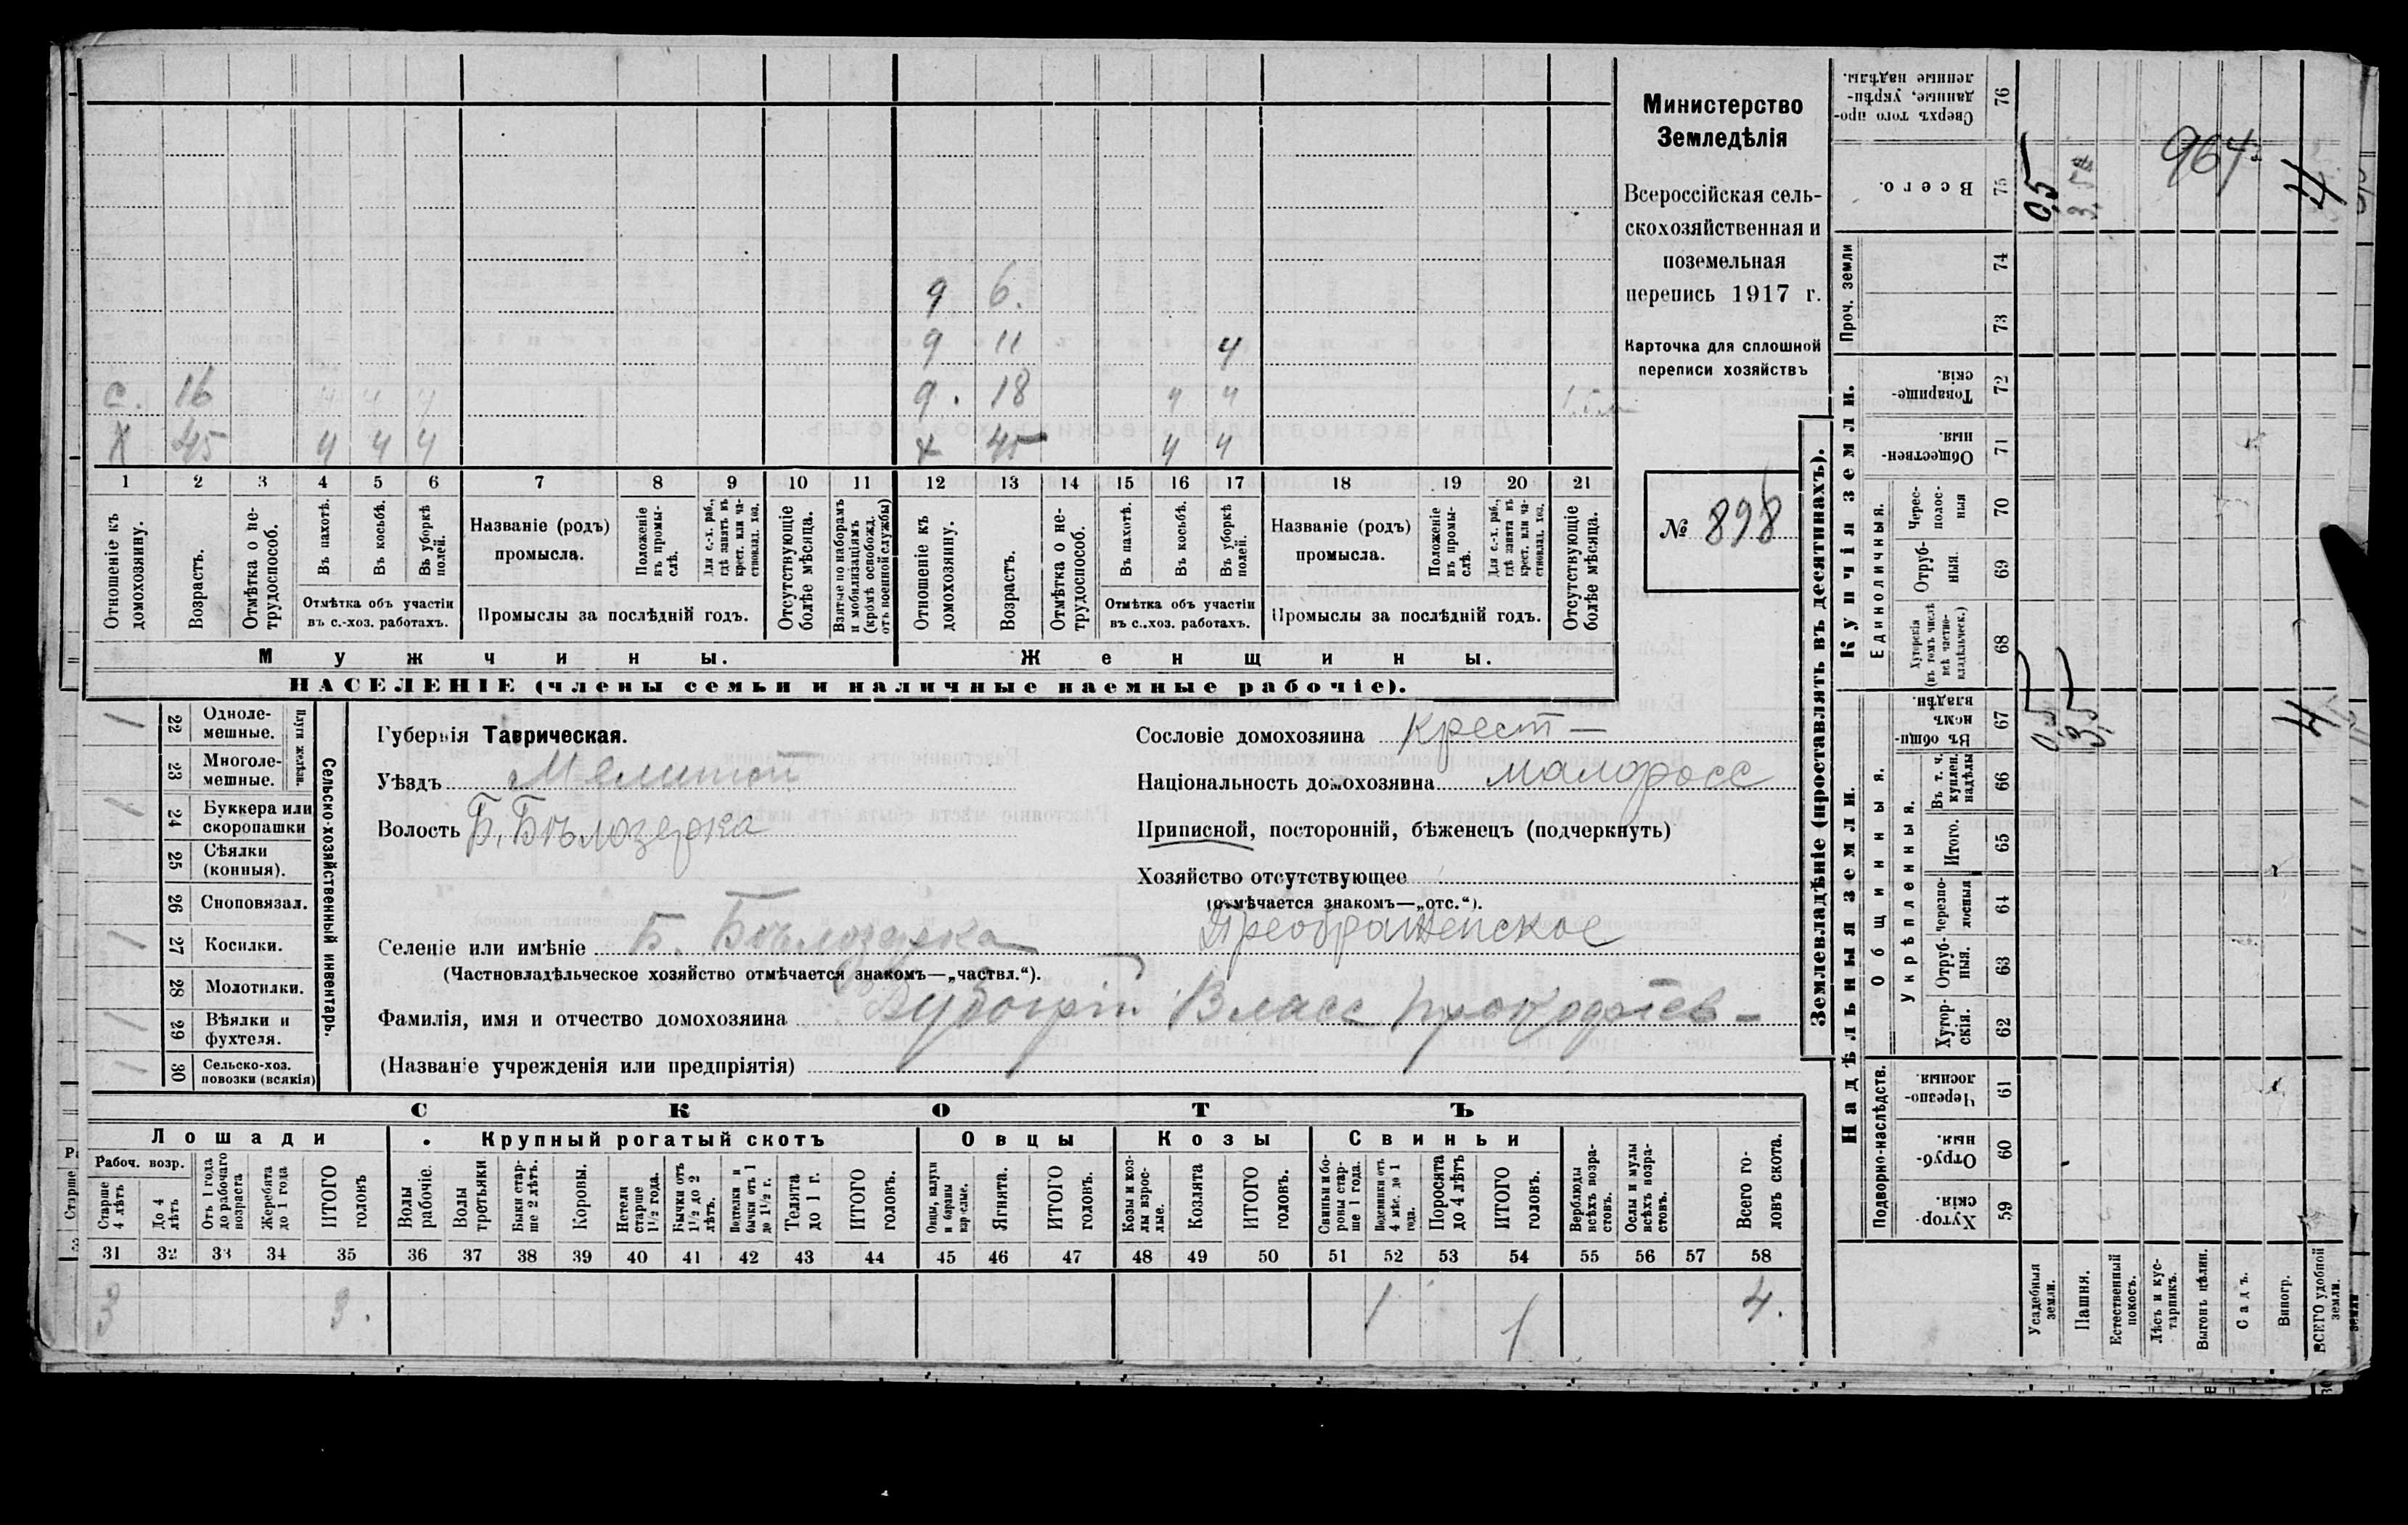 Министерство
Земледѣлія
Всероссійская сель-
скохозяйственная и
поземельная
перепись 1917 г.
Карточка для сплошной
переписи хозяйствъ
№ 898
9 6.
9 11 ч
с. 16 ч ч ч 9. 18 ч ч
х 45 ч ч ч х 45 ч ч
1 2 3 4 5 6 7 8 9 10 11 12 13 14 15 16 17 18 19 20 21
Отношеніе къ домохозяину.
Возрастъ.
Отмѣтка о не-трудоспособ.
Въ пахотѣ.
Въ косьбѣ.
Въ уборкѣ полей.
Отмѣтка объ участіи
въ с.-хоз. работахъ.
Названіе (родъ)
промысла.
Положеніе въ промы-слѣ.
Для с.-х. раб., гдѣ занятъ въ крест. или ча-стновлад. хоз.
Промыслы за послѣдній годъ.
Отсутствующіе болѣе мѣсяца.
Взятые по наборамъ и мобилизаціямъ (кромѣ освобожд. отъ военной службы)
Отношеніе къ домохозяину.
Возрастъ.
Отмѣтка о не-трудоспособ.
Въ пахотѣ.
Въ косьбѣ.
Въ уборкѣ полей.
Отмѣтка объ участіи
въ с..хоз. работахъ.
Названіе (родъ)
промысла.
Положеніе въ промы-слѣ.
Для с.-х. раб., гдѣ занятъ въ крест. или ча-стновлад. хоз.
Промыслы за послѣдній годъ.
Отсутствующіе болѣе мѣсяца.
Мужчины. Женщины.
НАСЕЛЕНІЕ (члены семьи и наличные наемные рабочіе).
1 22 Одноле-мешные.
23 Многоле-мешные.
Плуги желѣзн.
1 24 Буккера или скоропашки
25 Сѣялки (конныя).
26 Сноповязал.
1 27 Косилки.
28 Молотилки.
1 29 Вѣялки и фухтеля.
1 30 Сельско-хоз. повозки (всякія)
Сельско-хозяйственный инвентарь.
Губернія Таврическая.
Уѣздъ Мелитоп
Волость Б. Бѣлозерка
Селеніе или имѣніе Б. Бѣлозерка Преображенское
(Частновладѣльческое хозяйство отмѣчается знакомъ—„частвл.“).
Фамилія, имя и отчество домохозяина Власс Прокофіев-
(Названіе учрежденія или предпріятія)
Сословіе домохозяина крест-
Національность домохозяина малоросс
Приписной, посторонній, бѣженецъ (подчеркнуть)
Хозяйство отсутствующее
(отмѣчается знакомъ—„отс.“).
СКОТЪ
Лошади Крупный рогатый скотъ Овцы Козы Свиньи
Рабоч. возр.
Старше 4 лѣтъ
До 4 лѣтъ
Отъ 1 года до рабочаго возраста
Жеребята до 1 года
ИТОГО головъ
Волы рабочіе.
Волы третьяки
Быки стар-ше 2 лѣтъ.
Коровы.
Нетели старше 1½ года.
Бычки отъ 1½ до 2 лѣтъ.
Подтелки и бычки отъ 1 до 1½ г.
Телята до 1 г.
ИТОГО головъ.
Овцы, валухи и бараны взрослые.
Ягнята.
ИТОГО головъ.
Козы и коз-лы взрос-лые.
Козлята
ИТОГО головъ.
Свиньи и бо-ровы стар-ше 1 года.
Подсвинки отъ 4 мѣс. до 1 года.
Поросята до 4 лѣтъ
ИТОГО головъ.
Верблюды всѣхъ возра-стовъ.
Ослы и мулы всѣхъ возра-стовъ.
Всего го-ловъ скота.
31 32 33 34 35 36 37 38 39 40 41 42 43 44 45 46 47 48 49 50 51 52 53 54 55 56 57 58
3 3. 1 1 4.
Землевладѣніе (проставлять въ десятинахъ).
Надѣльныя земли. Купчія земли. Проч. земли
Подворно-наслѣдств.
Общинныя.
Укрѣпленныя.
Единоличныя.
Хутор-скія. 59
Отруб-ныя. 60
Черезпо-лосныя. 61
Хутор-скія. 62
Отруб-ныя. 63
Черезпо-лосныя 64
Итого. 65
Въ т. ч. куплен. надѣлы 66
Въ общин-номъ владѣн. 67
Хуторскія (въ томъ числѣ всѣ частно-владѣльческ.) 68
Отруб-ныя. 69
Черес-полос-ныя 70
Обществен-ныя. 71
Товарище-скія. 72
73
74
Всего. 75
Сверхъ того про-данные, укрѣп-ленные надѣлы. 76
Усадебныя земли. 0,5 0,5
Пашня. 3,5 3,5
Естественный покосъ.
Лѣсъ и кус-тарникъ.
Выгонъ цѣлин.
Садъ.
Виногр.
ВСЕГО удобной земли. 4 4
964